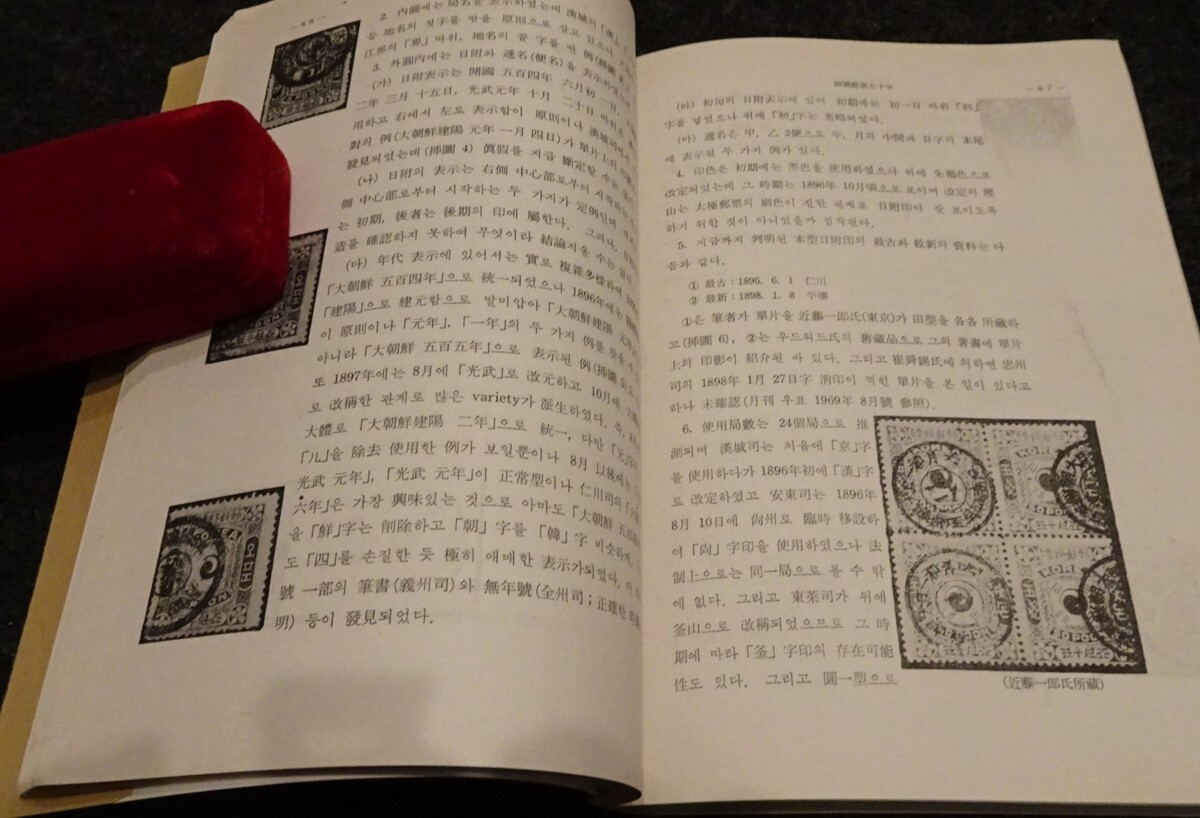 —68—
2. 內圓에는 局名을 表示하였는데 漢城의「漢」
等 地名의 첫字를 땀을 原則으로 삼고 있으나
江界의「界」따위, 地名의 끝 字를 딴 例(挿圖
3. 外圓內에는 日附와 遞名(便名)을 表示하였는
(가) 日附表示는 開國 五百四年 六月初一日
二年 三月 十五日, 光武元年 十月 二十日 따위로
用하고 右에서 左로 表示함이 原則이나 漢城司에서
對의 例(大朝鮮建陽 元年 一月 四日)가 單片上의 印影
發見되었는데(挿圖 4) 眞假를 지금 斷定할 수는
(나) 日附의 表示는 右側 中心部로부터 시작하는
側 中心部로부터 시작하는 두 가지가 定例인데
는 初期, 後者는 後期의 印에 屬한다. 그러나,
造를 確認하지 못하여 무엇이라 結論지을 수는 없다
(다) 年代 表示에 있어서는 實로 複雜多樣하여
「大朝鮮 五百四年」으로 統一되었으나 1896年에는
「建陽」으로 建元함으로 말미암아「大朝鮮建陽 元年」
이 原則이나「元年」,「一年」의 두 가지 例를 찾을 수
아니라「大朝鮮 五百五年」으로 表示된 例(挿圖
또 1897年에는 8月에「光武」로 改元하고 10月에
로 改稱한 관계로 많은 variety가 派生하였다. 즉,
大體로「大朝鮮建陽 二年」으로 統一, 다만「元」字의
「儿」을 除去 使用한 例가 보일뿐이나 8月 以後에는
光武 元年」,「光武 元年」이 正常型이나 仁川司의
六年」은 가장 興味있는 것으로 아마도「大朝鮮 五百
을「鮮」字는 削除하고「朝」字를「韓」字 비슷하게,
도「四」를 손질한 듯 極히 애매한 表示가되었다.
號 一部의 筆書(義州司)와 無年號(全州司;正確한
明) 등이 發見되었다.
—67—
(라) 初旬의 日附表示에 있어 初期에는 初一日 따위「初」
字를 넣었으나 뒤에「初」字는 省略하였다.
(마) 遞名은 甲, 乙 2便으로 年, 月의 中間과 日字의 末尾
에 表示된 두 가지 例가 있다.
4. 印色은 初期에는 黑色을 使用하였으나 뒤에 朱褐色으로
改定되었는데 그 時期는 1896年 10月頃으로 보이며 改定의 理
由는 太極郵票의 刷色이 진한 관계로 日附印이 잘 보이도록
하기 위한 것이 아니었을까 짐작된다.
5. 지금까지 判明된 本型日附印의 最古와 最新의 資料는 다
음과 같다.
① 最古:1895. 6. 1 仁川
② 最新:1898. 1. 8 平壤
①은 筆者가 單片을 近藤一郎氏(東京)가 田型을 各各 所藏하
고(挿圖 6), ②는 우드워드氏의 舊藏品으로 그의 著書에 單片
上의 印影이 紹介된 바 있다. 그리고 崔舜錫氏에 依하면 忠州
司의 1898年 1月 27日字 消印이 찍힌 單片을 본 일이 있다고
하나 未確認(月刊 우표 1969年 8月號 參照).
6. 使用局數는 24個局으로 推
測되며 漢城司는 처음에「京」字
를 使用하다가 1896年初에「漢」字
로 改定하였고 安東司는 1896年
8月 10日에 尙州로 臨時 移設하
여「尙」字印을 使用하였으나 法
制上으로는 同一局으로 볼 수 밖
에 없다. 그리고 東萊司가 뒤에
釜山으로 改稱되었으므로 그 時
期에 따라「釜」字印의 存在可能
性도 있다. 그리고 圓一型으로
(近藤一郎氏所藏)